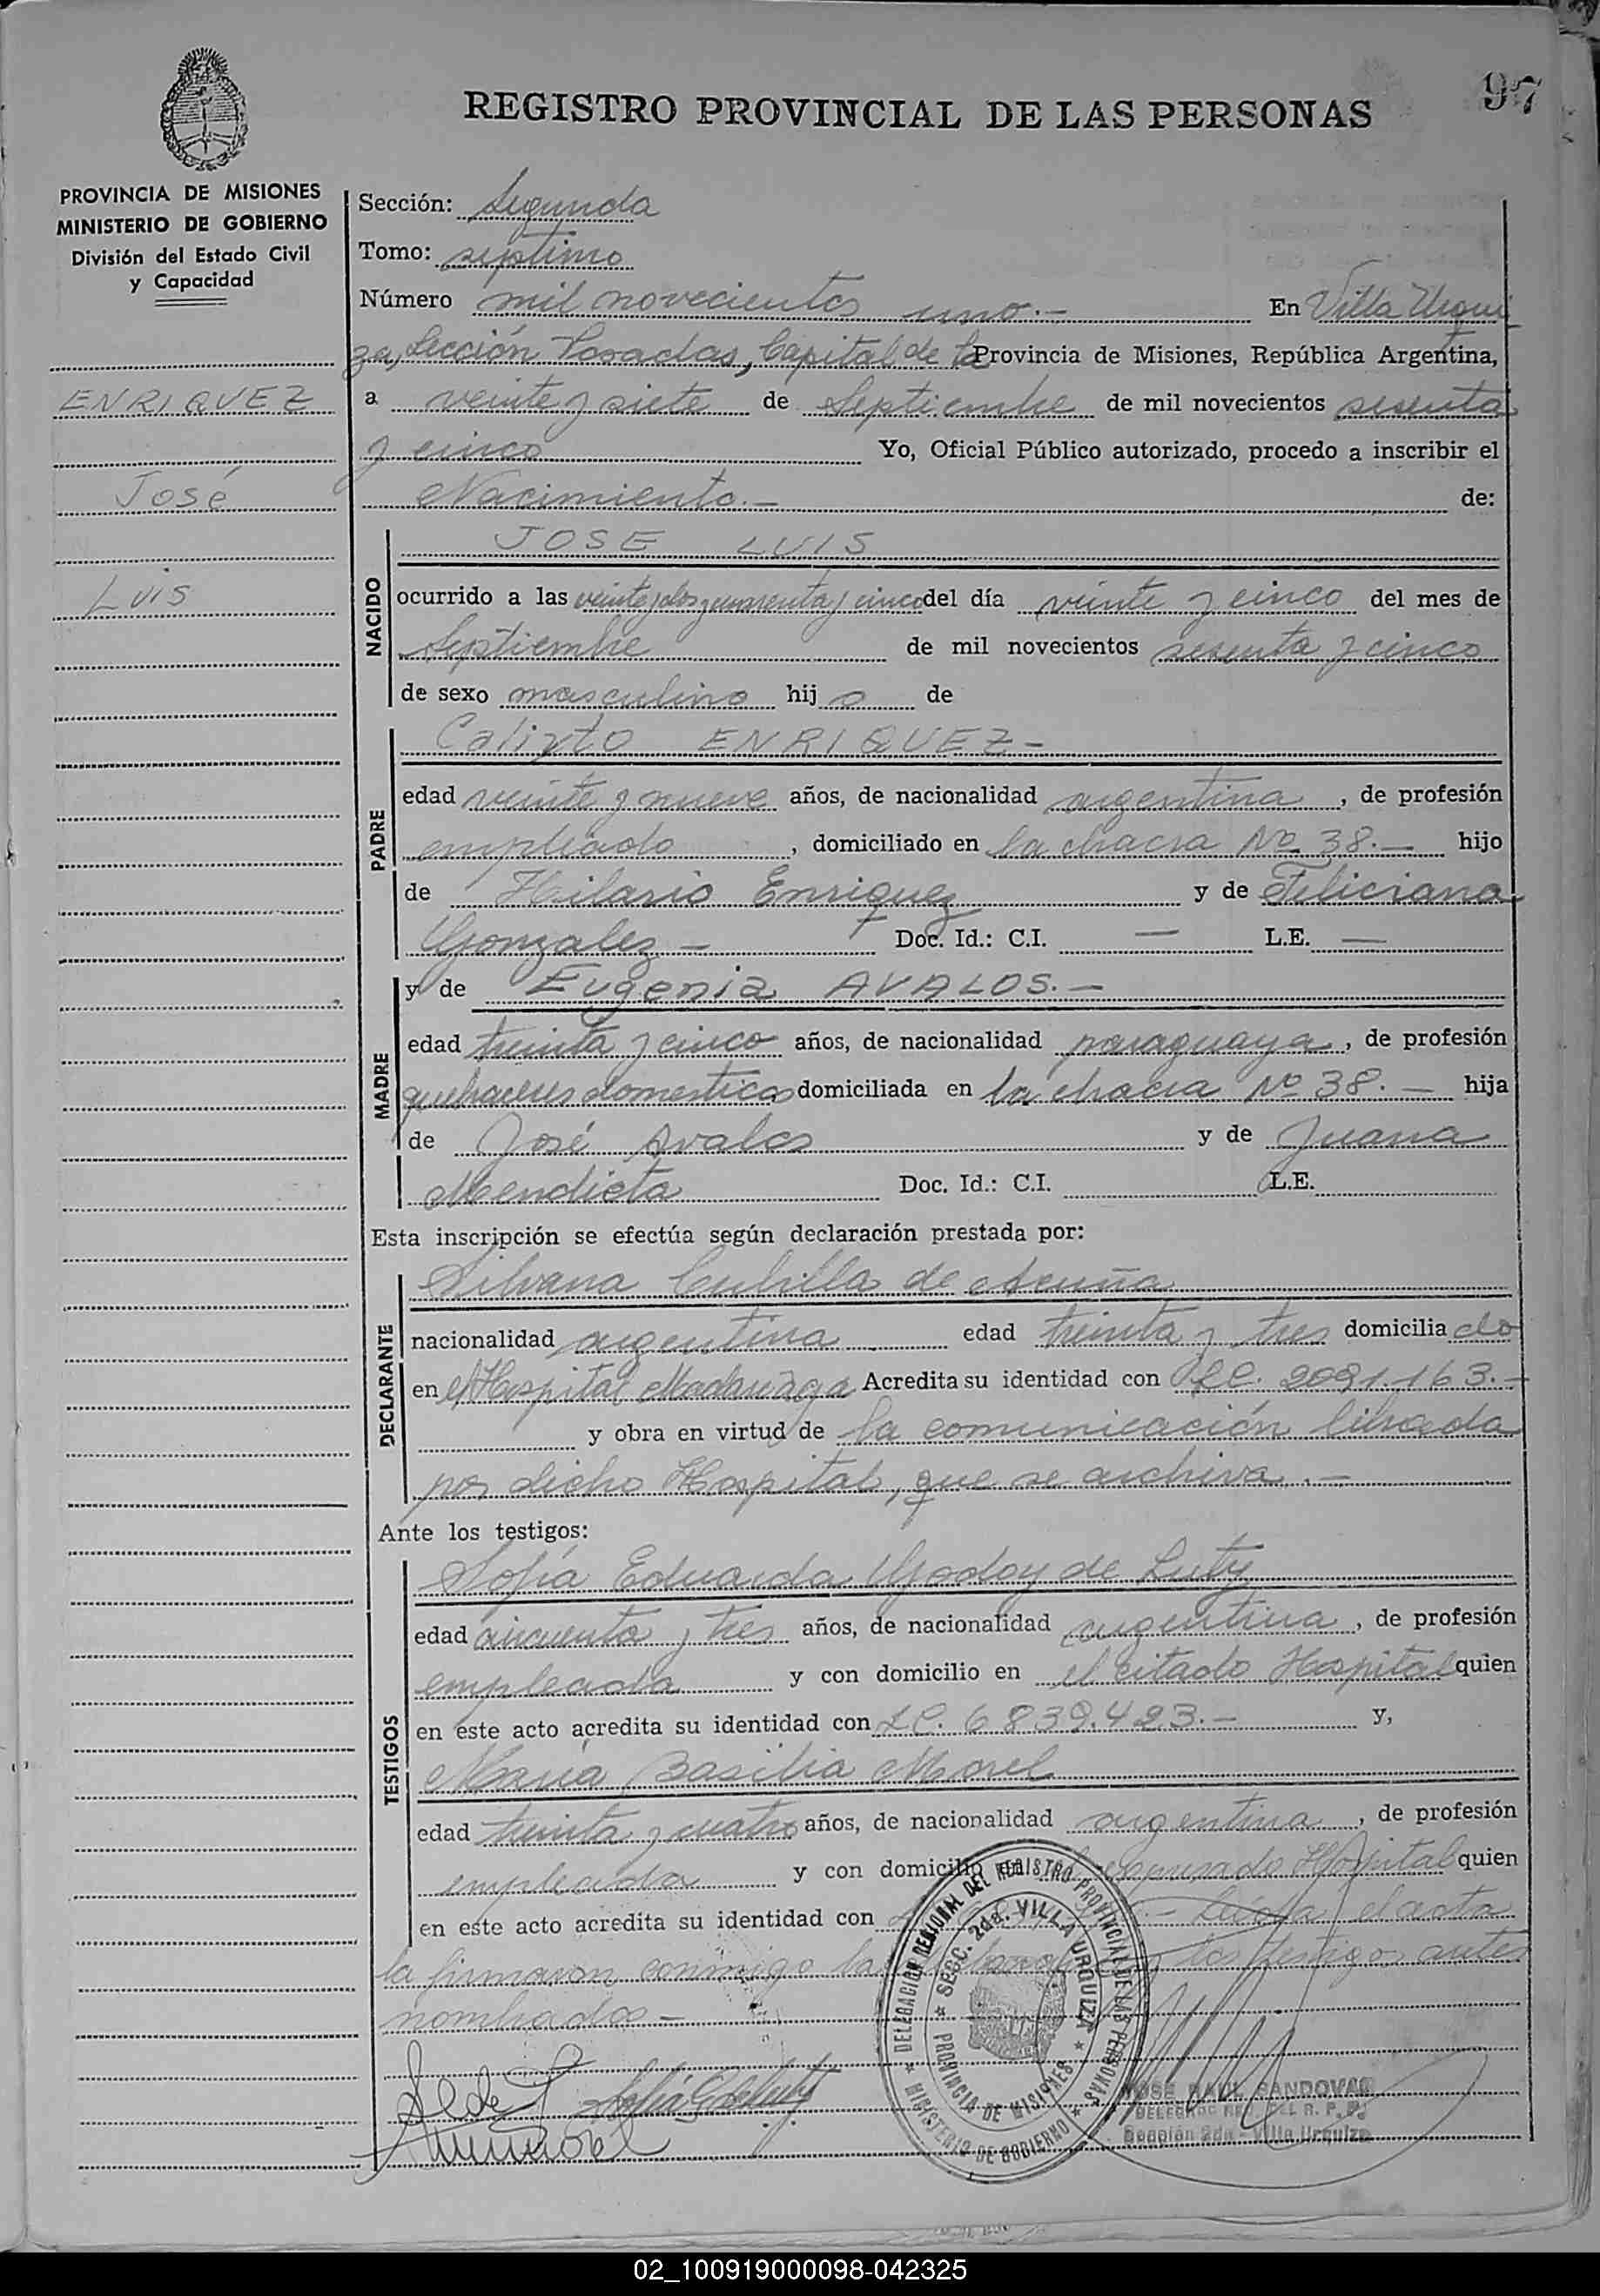 97
REGISTRO PROVINCIAL DE LAS PERSONAS
PROVINCIA DE MISIONES
MINISTERIO DE GOBIERNO
División del Estado Civil
y Capacidad
ENRIQUEZ
José
Luis
Sección: Segunda
Tomo: septimo
Número mil novecientos uno.- En Villa Urqui
za, Sección Posadas, Capital de la Provincia de Misiones, República Argentina,
a veinte y siete de Septiembre de mil novecientos sesenta
y cinco Yo, Oficial Público autorizado, procedo a inscribir el
Nacimiento.- de:
NACIDO
JOSE LUIS
ocurrido a las veinte y dos y cuarenta y cinco del día veinte y cinco del mes de
Septiembre de mil novecientos sesenta y cinco
de sexo masculino hijo de
PADRE
Calixto ENRIQUEZ-
edad veinte y nueve años, de nacionalidad argentina, de profesión
empleado, domiciliado en la chacra Nº 38.- hijo
de Hilario Enriquez y de Feliciana
Gonzalez - Doc. Id.: C.I. — L.E. —
MADRE
y de Eugenia AVALOS.-
edad treinta y cinco años, de nacionalidad paraguaya, de profesión
quehaceres domesticos domiciliada en la chacra Nº 38.- hija
de José Avalos y de Juana
Mendieta Doc. Id.: C.I. L.E.
Esta inscripción se efectúa según declaración prestada por:
DECLARANTE
Silvana Cubilla de Acuña
nacionalidad argentina edad treinta y tres domiciliado
en el Hospital Madariaga Acredita su identidad con L.C. 2091.163.-
y obra en virtud de la comunicación librada
por dicho Hospital, que se archiva.-
Ante los testigos:
TESTIGOS
Sofía Eduarda Godoy de Luty
edad cincuenta y tres años, de nacionalidad argentina, de profesión
empleada y con domicilio en el citado Hospital quien
en este acto acredita su identidad con L.C. 6839.423.- y,
María Basilia Morel
edad treinta y cuatro años, de nacionalidad argentina, de profesión
empleada y con domicilio en expresado Hospital quien
en este acto acredita su identidad con Leída el acta
la firmaron conmigo la los testigos antes
nombrados -
DELEGACION REGIONAL DEL REGISTRO PROVINCIAL DE LAS PERSONAS
MINISTERIO DE GOBIERNO
SECC. 2da. VILLA URQUIZA
PROVINCIA DE MISIONES
JOSE RAUL SANDOVAL
DELEGADO REG. DEL R. P. P.
Sección 2da - Villa Urquiza
02_100919000098-042325